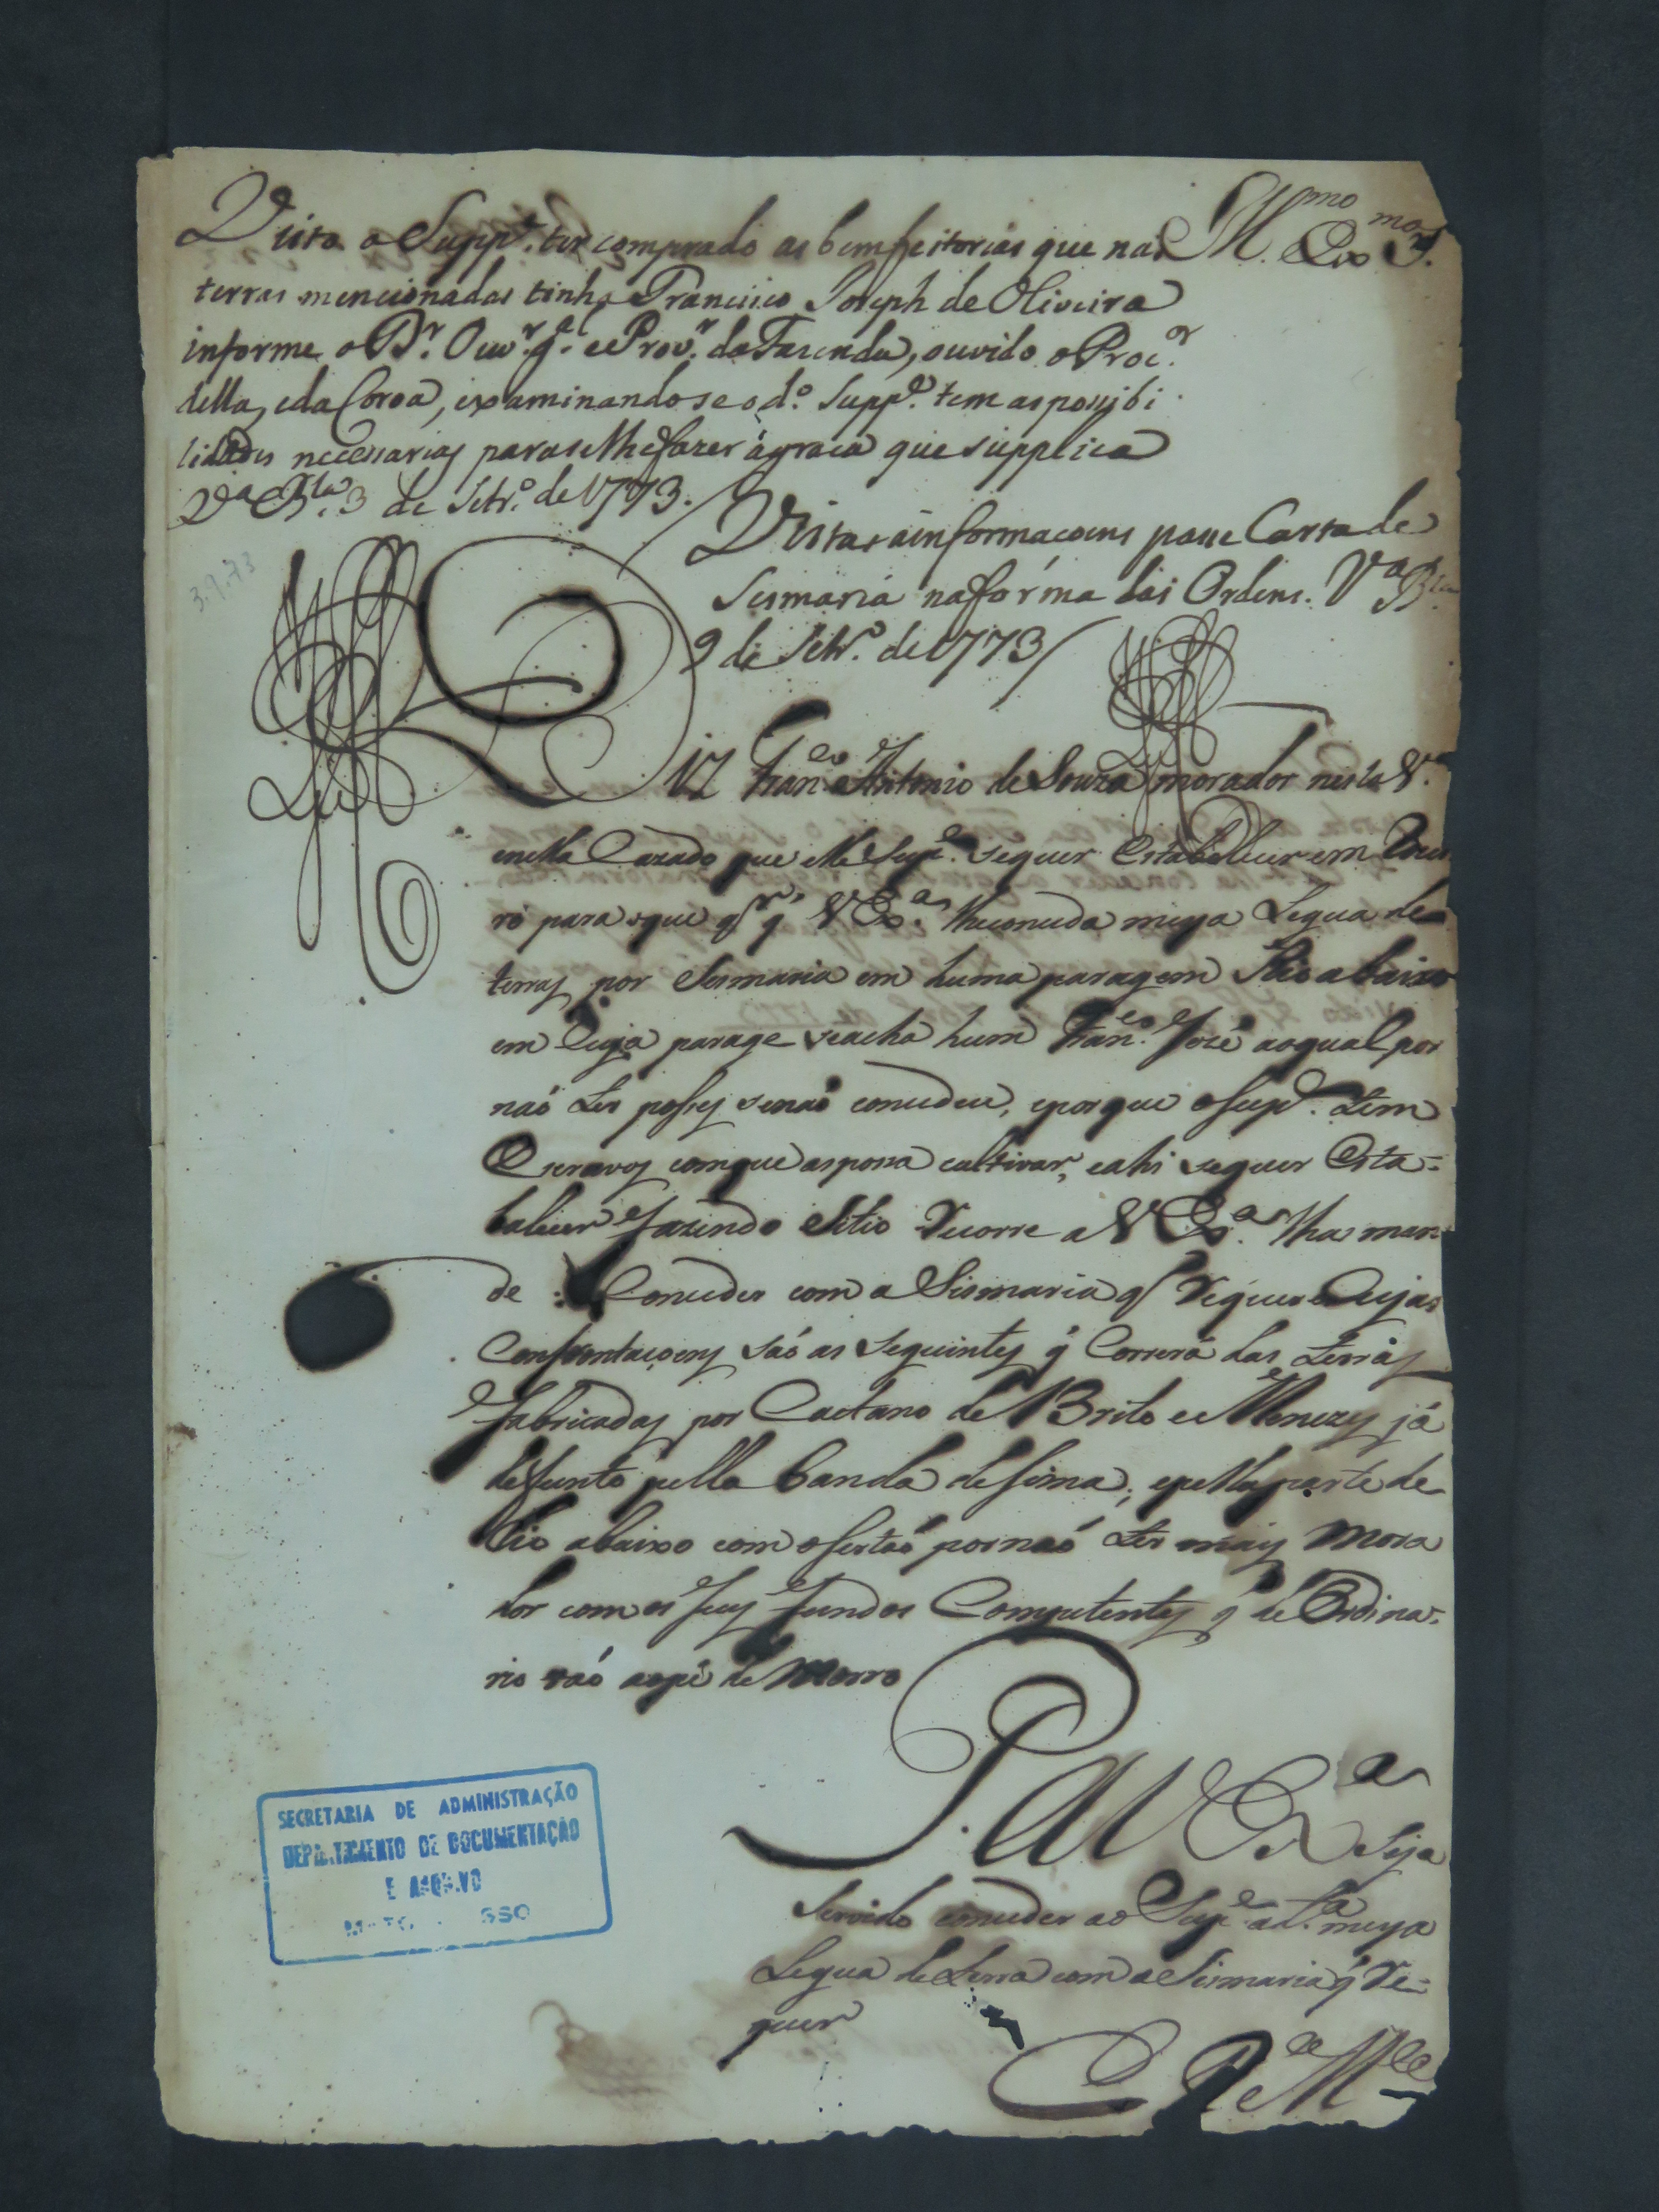 Ill.mo Ex.mo S.or
Visto o Supp.e ter comprado as bemfeitorias que nas
terras mencionadas tinha Francisco Joseph de Oliveira
informe o D.r Ouv.r g.al e Prov.r da Fazenda, ouvido o Proc.or
della, e da Coroa, examinando se o d.o Supp.e tem as possibi
lidades necessarias para se lhe fazer a graça que supplica
V.a B.la 3 de Setr.o de 1773.
3.9.73
Vistas as informaçoens passe Carta de
Sesmaria na fórma das Ordens. V.a B.la
9 de Setr.o de 1773
Diz Fran.co Antonio de Souza morador nesta V.a
e nella Cazado que elle Sup.e se quer Estabelecer em
ro para o que q.r q̃ V Ex.a lhe conceda meya Legua de
terras por Sesmaria em huma paragem Rio abaixo
em Cuja parage se acha hum Fran.co José ao qual por
naó ter posses se naó concedeu, e porque o Sup.e tem
Escravos com que as possa cultivar, e ahi se quer Esta-
balecer fazendo Sitio Recorre a V Ex.a lha man
de Conceder com a Sismaria q̃ Requer e Cujas
Confrontaçoens saó as Seguintes q̃ Correrá das terras
fabricadas por Caetano de Brito e Menezes já
defunto pella banda de sima, e pella parte de
Rio abaixo com o sertaó por naó ter mais Mora
dor com os seus fundos Competentes q̃ de Ordina-
rio vaó ao pé de Morro
P. a V Ex.a Seja
Servido conceder ao Sup.e a d.a meya
Legua de terra com a Sismaria q̃ Re-
quer
E R M.ce
SECRETARIA DE ADMINISTRAÇÃO
DEPARTAMENTO DE DOCUMENTAÇÃO
E ARQUIVO
MATO GROSSO